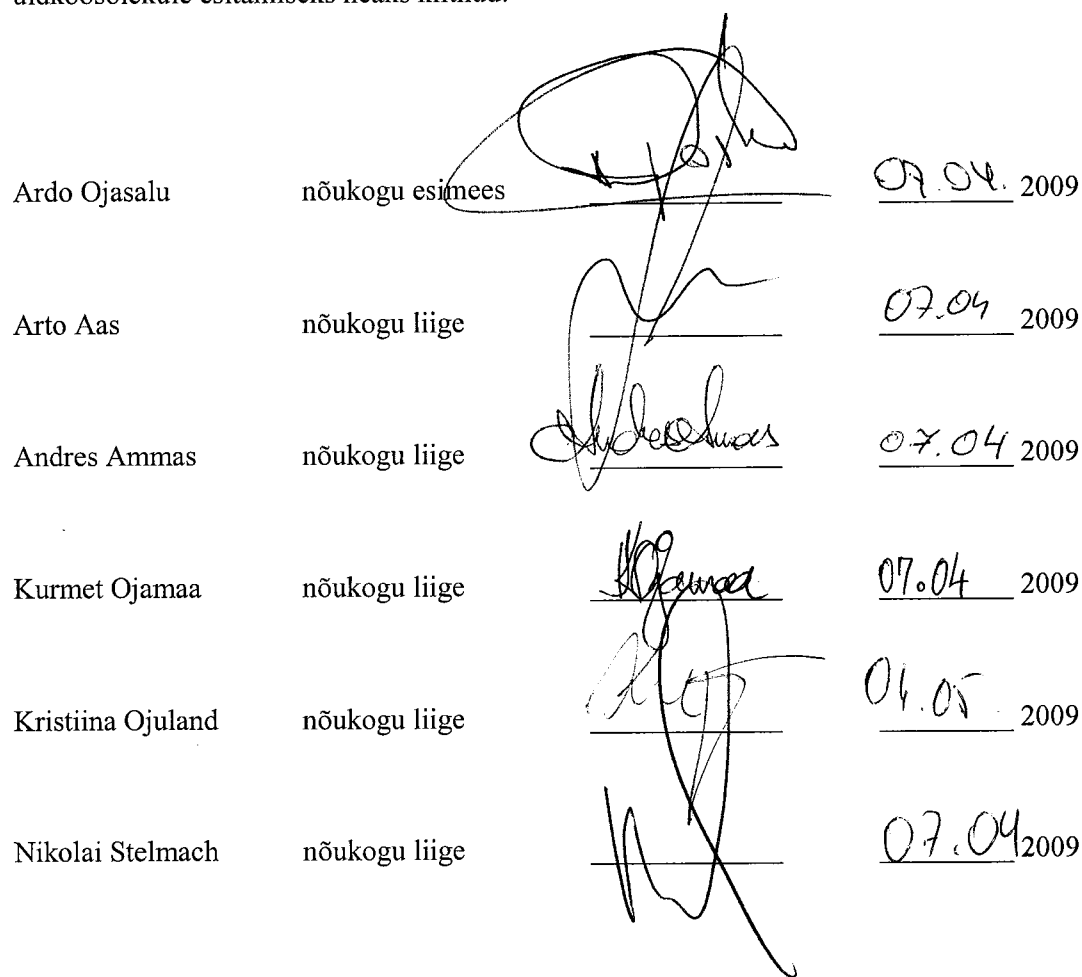 üldkoosolekule esitamiseks heaks kiitnud.
Ardo Ojasalu nõukogu esimees 07.04. 2009
Arto Aas nõukogu liige 07.04 2009
Andres Ammas nõukogu liige 07.04 2009
Kurmet Ojamaa nõukogu liige KOjamaa 07.04 2009
Kristiina Ojuland nõukogu liige 04.05 2009
Nikolai Stelmach nõukogu liige 07.04 2009